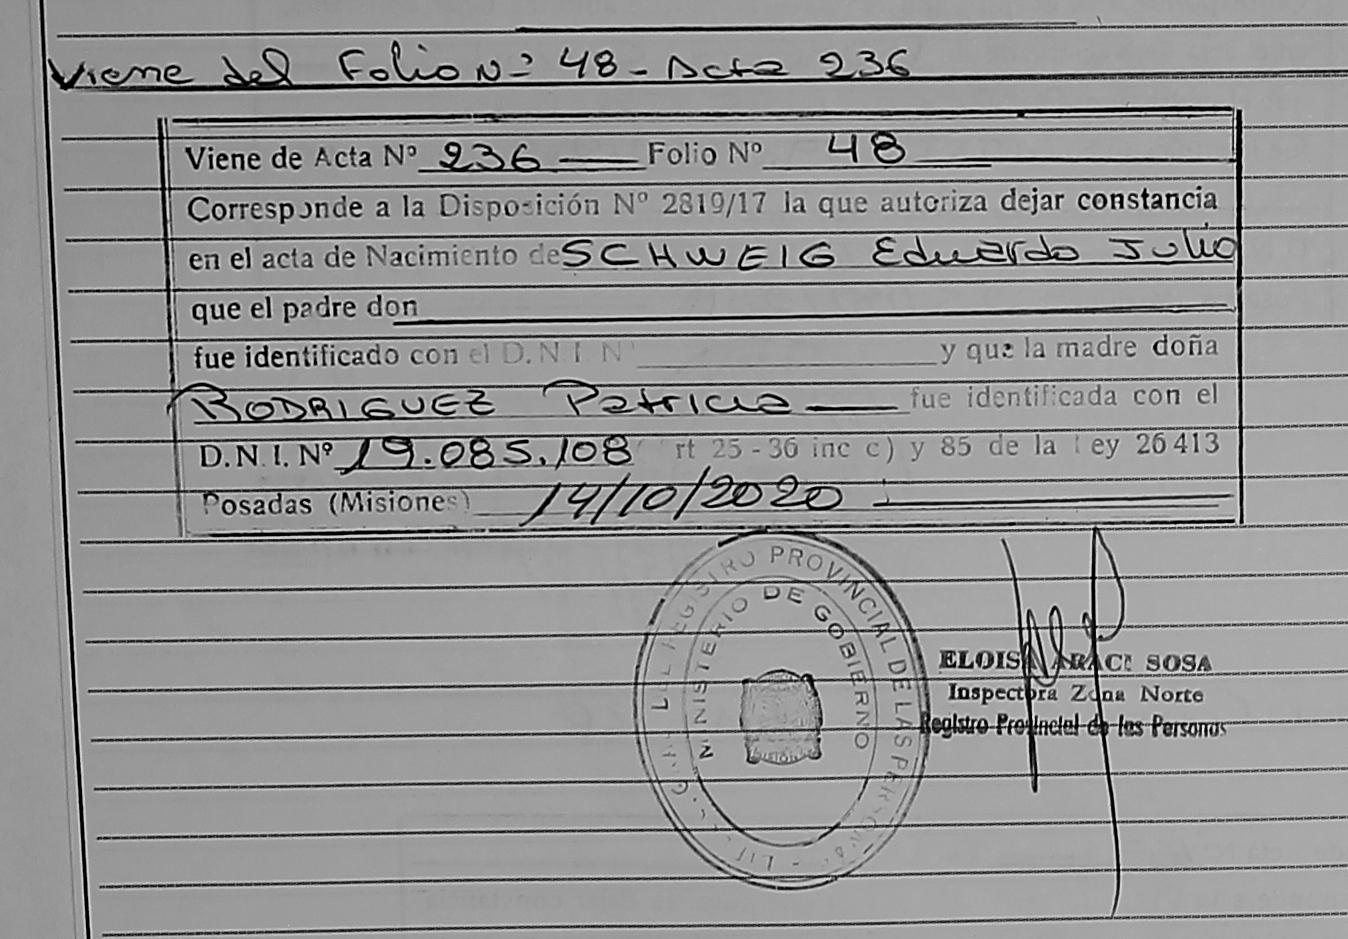 Viene del Folio Nº 48 - Acta 236
Viene de Acta Nº 236 Folio Nº 48
Corresponde a la Disposición Nº 2819/17 la que autoriza dejar constancia
en el acta de Nacimiento de SCHWEIG Eduardo Julio
que el padre don
fue identificado con el D.N.I. Nº y que la madre doña
RODRIGUEZ Patricia fue identificada con el
D.N.I. Nº 19.085.108 rt 25 - 36 inc c) y 85 de la Ley 26413
Posadas (Misiones) 14/10/2020
REGISTRO PROVINCIAL DE LAS PERSONAS
MINISTERIO DE GOBIERNO
ELOISA SOSA
Inspectora Zona Norte
Registro Provincial de las Personas